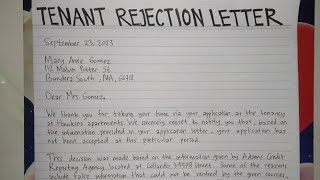 TENANT REJECTION LETTER
September 23, 2023
Mary Anne Gomez
112 Malvin Potter St
Banders South, MA, 62718
Dear Mrs. Gomez,
We thank you for taking your time via your application at the tenancy
at Hawkins apartments. We sincerely regret to notify you that, based on
the information provided in your application letter, your application has
not been accepted at this particular period.
This decision was made based on the information given by Adams Credit
Reporting Agency, located at Collards 34578 Street. Some of the reasons
include false information that could not be verified by the given survey,